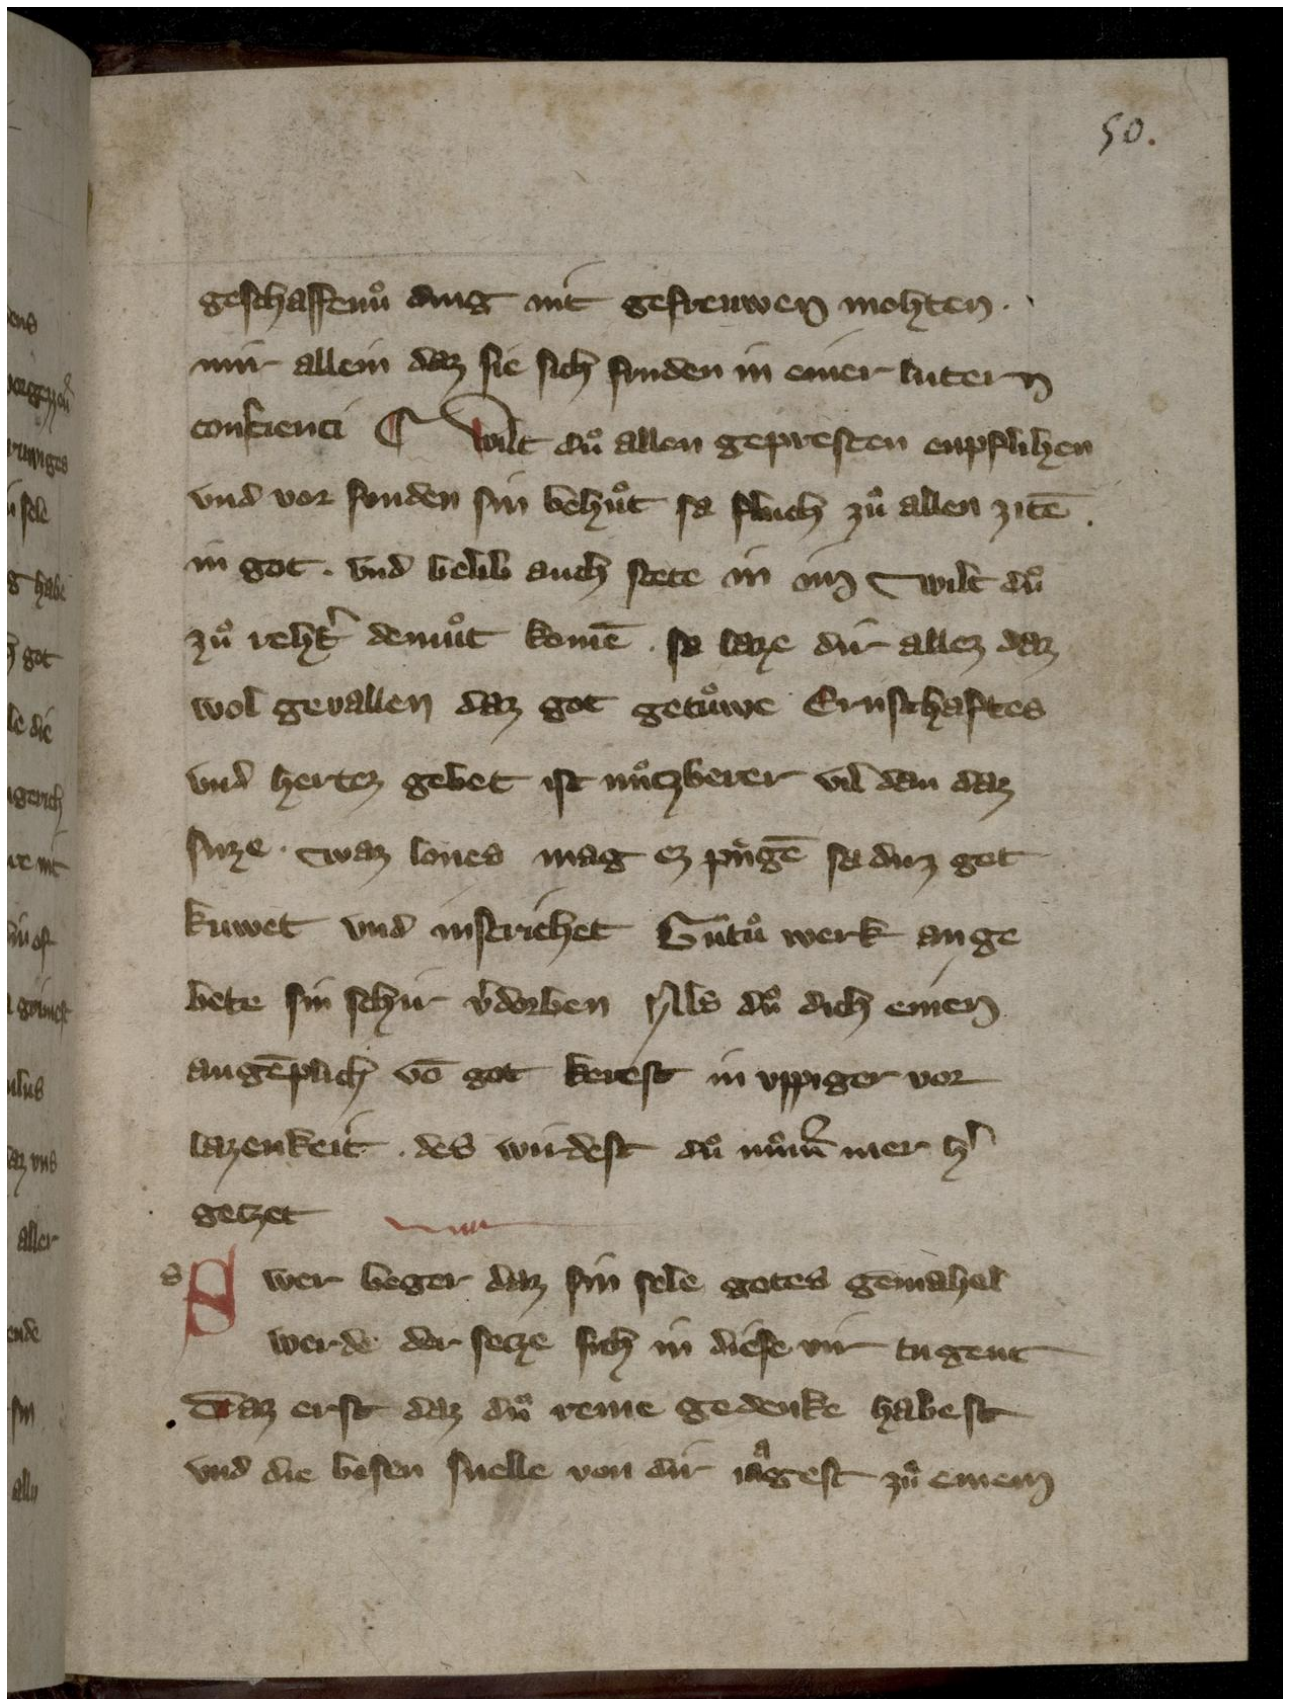 50.
geschaffenuͦ ding nit gefreuwen mohten.
nur allein daz sie sich funden in einer lutern
consciencj ¶ Wilt duͦ allen gepresten enpflihen
und vor sunden sin behuͦt sa fluch zuͦ allen zitē.
in got. und belib auch stete in im Wilt duͦ
zuͦ rehtˀ demuͦt komē. sa laze dir allez daz
wol gevallen daz got getuͦwe Ernschaftes
und hertez gebet ist nuͦtzberer vil dan daz
suze. waz lones mag ez pͥngē sa duz got
kuwet und schrichet Gutuͦ werk an ge
bete sin schir vˀdorben Als duͦ dich einen
augēplich vō got kerest in uppiger vor
lazenkeit. des wirdest duͦ nuͦm̄ mer hˀ
getzet
S wer beger daz sin sele gotes gemahel
werde der setze sich in diese vir tugent
Daz erst daz duͦ reine gedenke habest
und die besen snelle von dir iagest zuͦ einem